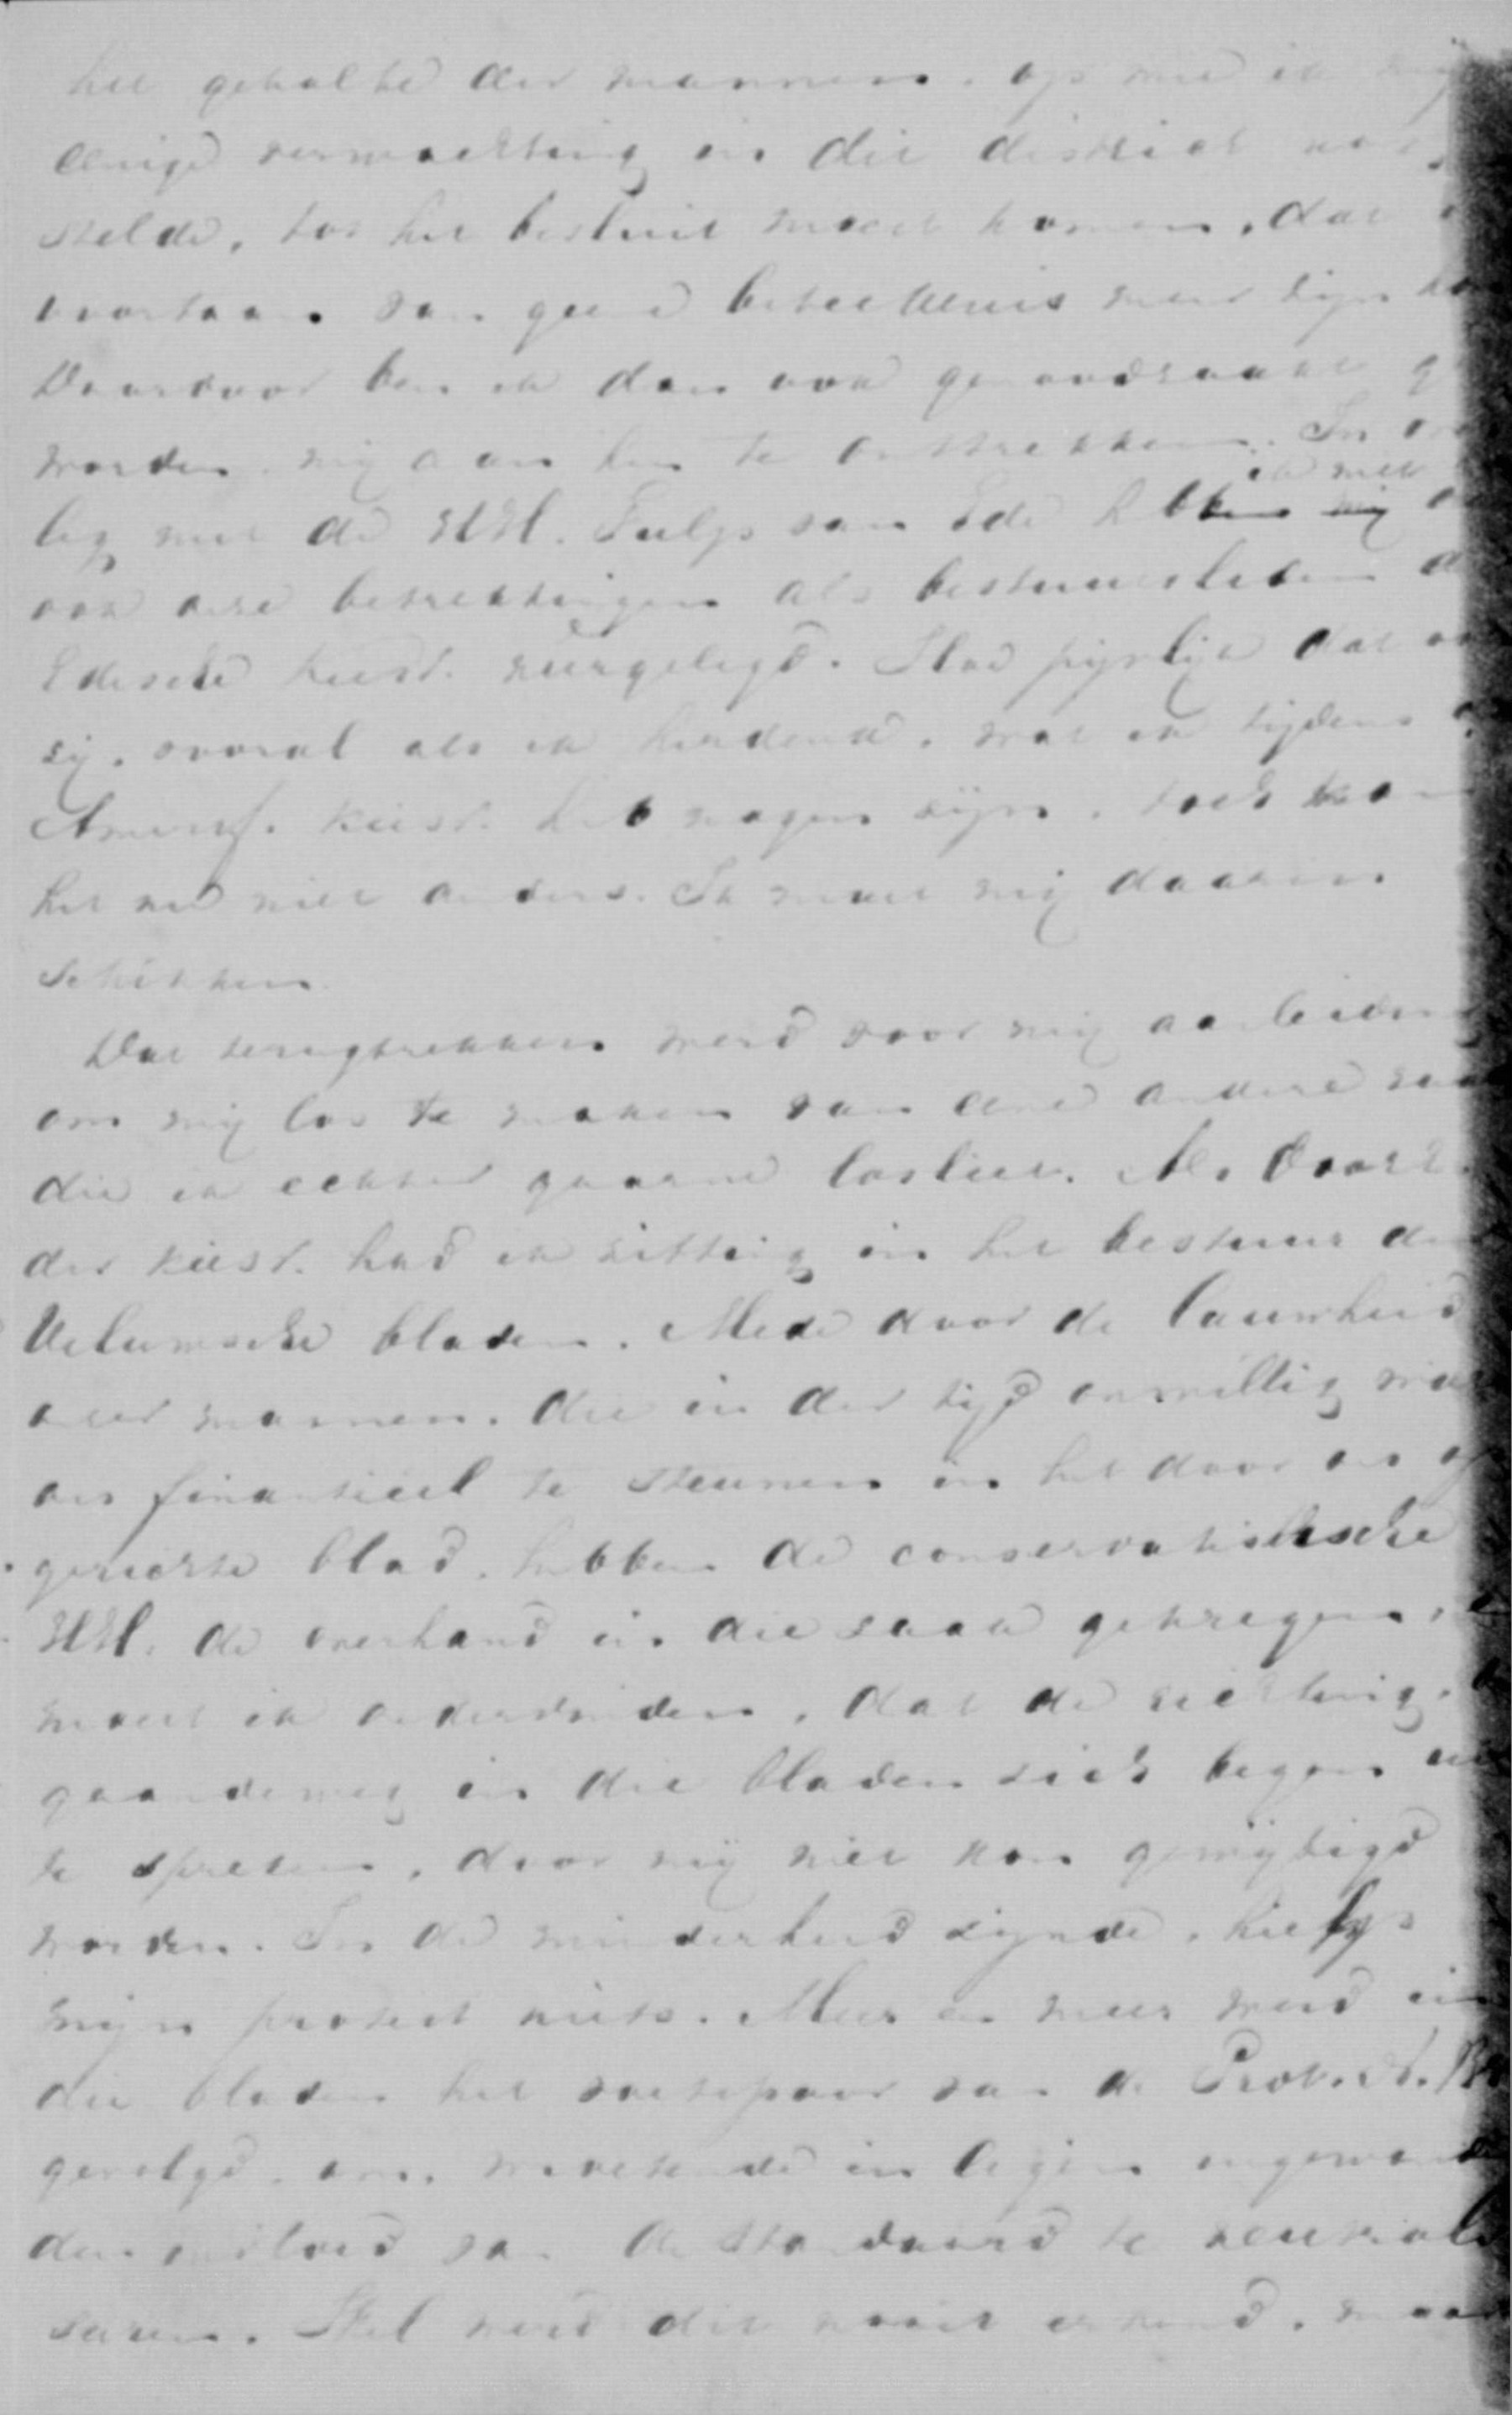 het gehalte der mannen, op wie ik
eenige verwachting in dit district
stelde, tot het besluit moest komen, dat
voortaan van geene beteekenis meer zijn
Daardoor ben ik dan ook genoodzaakt
worden mij aan hen te onttrekken. In
leg met de HH. Tulp van Ede hebben mij
ik met
ook onze betrekkingen als bestuursleden
Edesche kiesv. neergelegd. Hoe pijnlijk dat
zij, vooral als ik herdenk, wat ik tijdens
Amersf. kiesv. heb mogen zijn, toch kan
het nu niet anders. Ik moet mij daarin
schikken
Dat terugtrekken werd voor mij aanleiding
om mij los te maken van eene andere
die ik echter gaarne losliet. Als Voorz.
der kiesv. had ik zitting in het bestuur der
Veluwsche bladen. Mede door de lauwheid
onzer mannen, die in der tijd onwillig
ons financieel te steunen in het door ons
gerichte blad, hebben de conservatistische
HH. de overhand in die zaak gekregen,
moest ik ondervinden, dat de richting,
gaandeweg in die bladen zich begon
te spreken, door mij niet kon gewijzigd
worden. In de minderheid zijnde, hielp
mijn protest niets. Meer en meer werd in
die bladen het voetspoor van de Prov. A.
gevolgd, om,
den invloed van de Standaard te neutrali
seren. Wel werd dit nooit erkend, maar